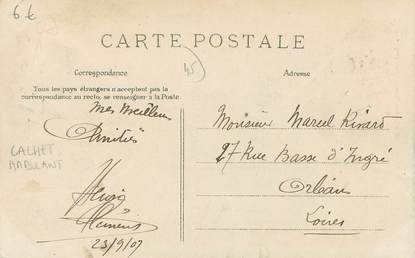 6 €
CARTE POSTALE
45
Correspondance
Adresse
Tous les pays étrangers n'acceptent pas la
correspondance au recto, se renseigner à la Poste
mes meilleures
Amitiés
CACHET
AMBULANT
Monsieur Marcel
27 Rue Basse d'Ingré
Orléans
Loiret
23/9/07